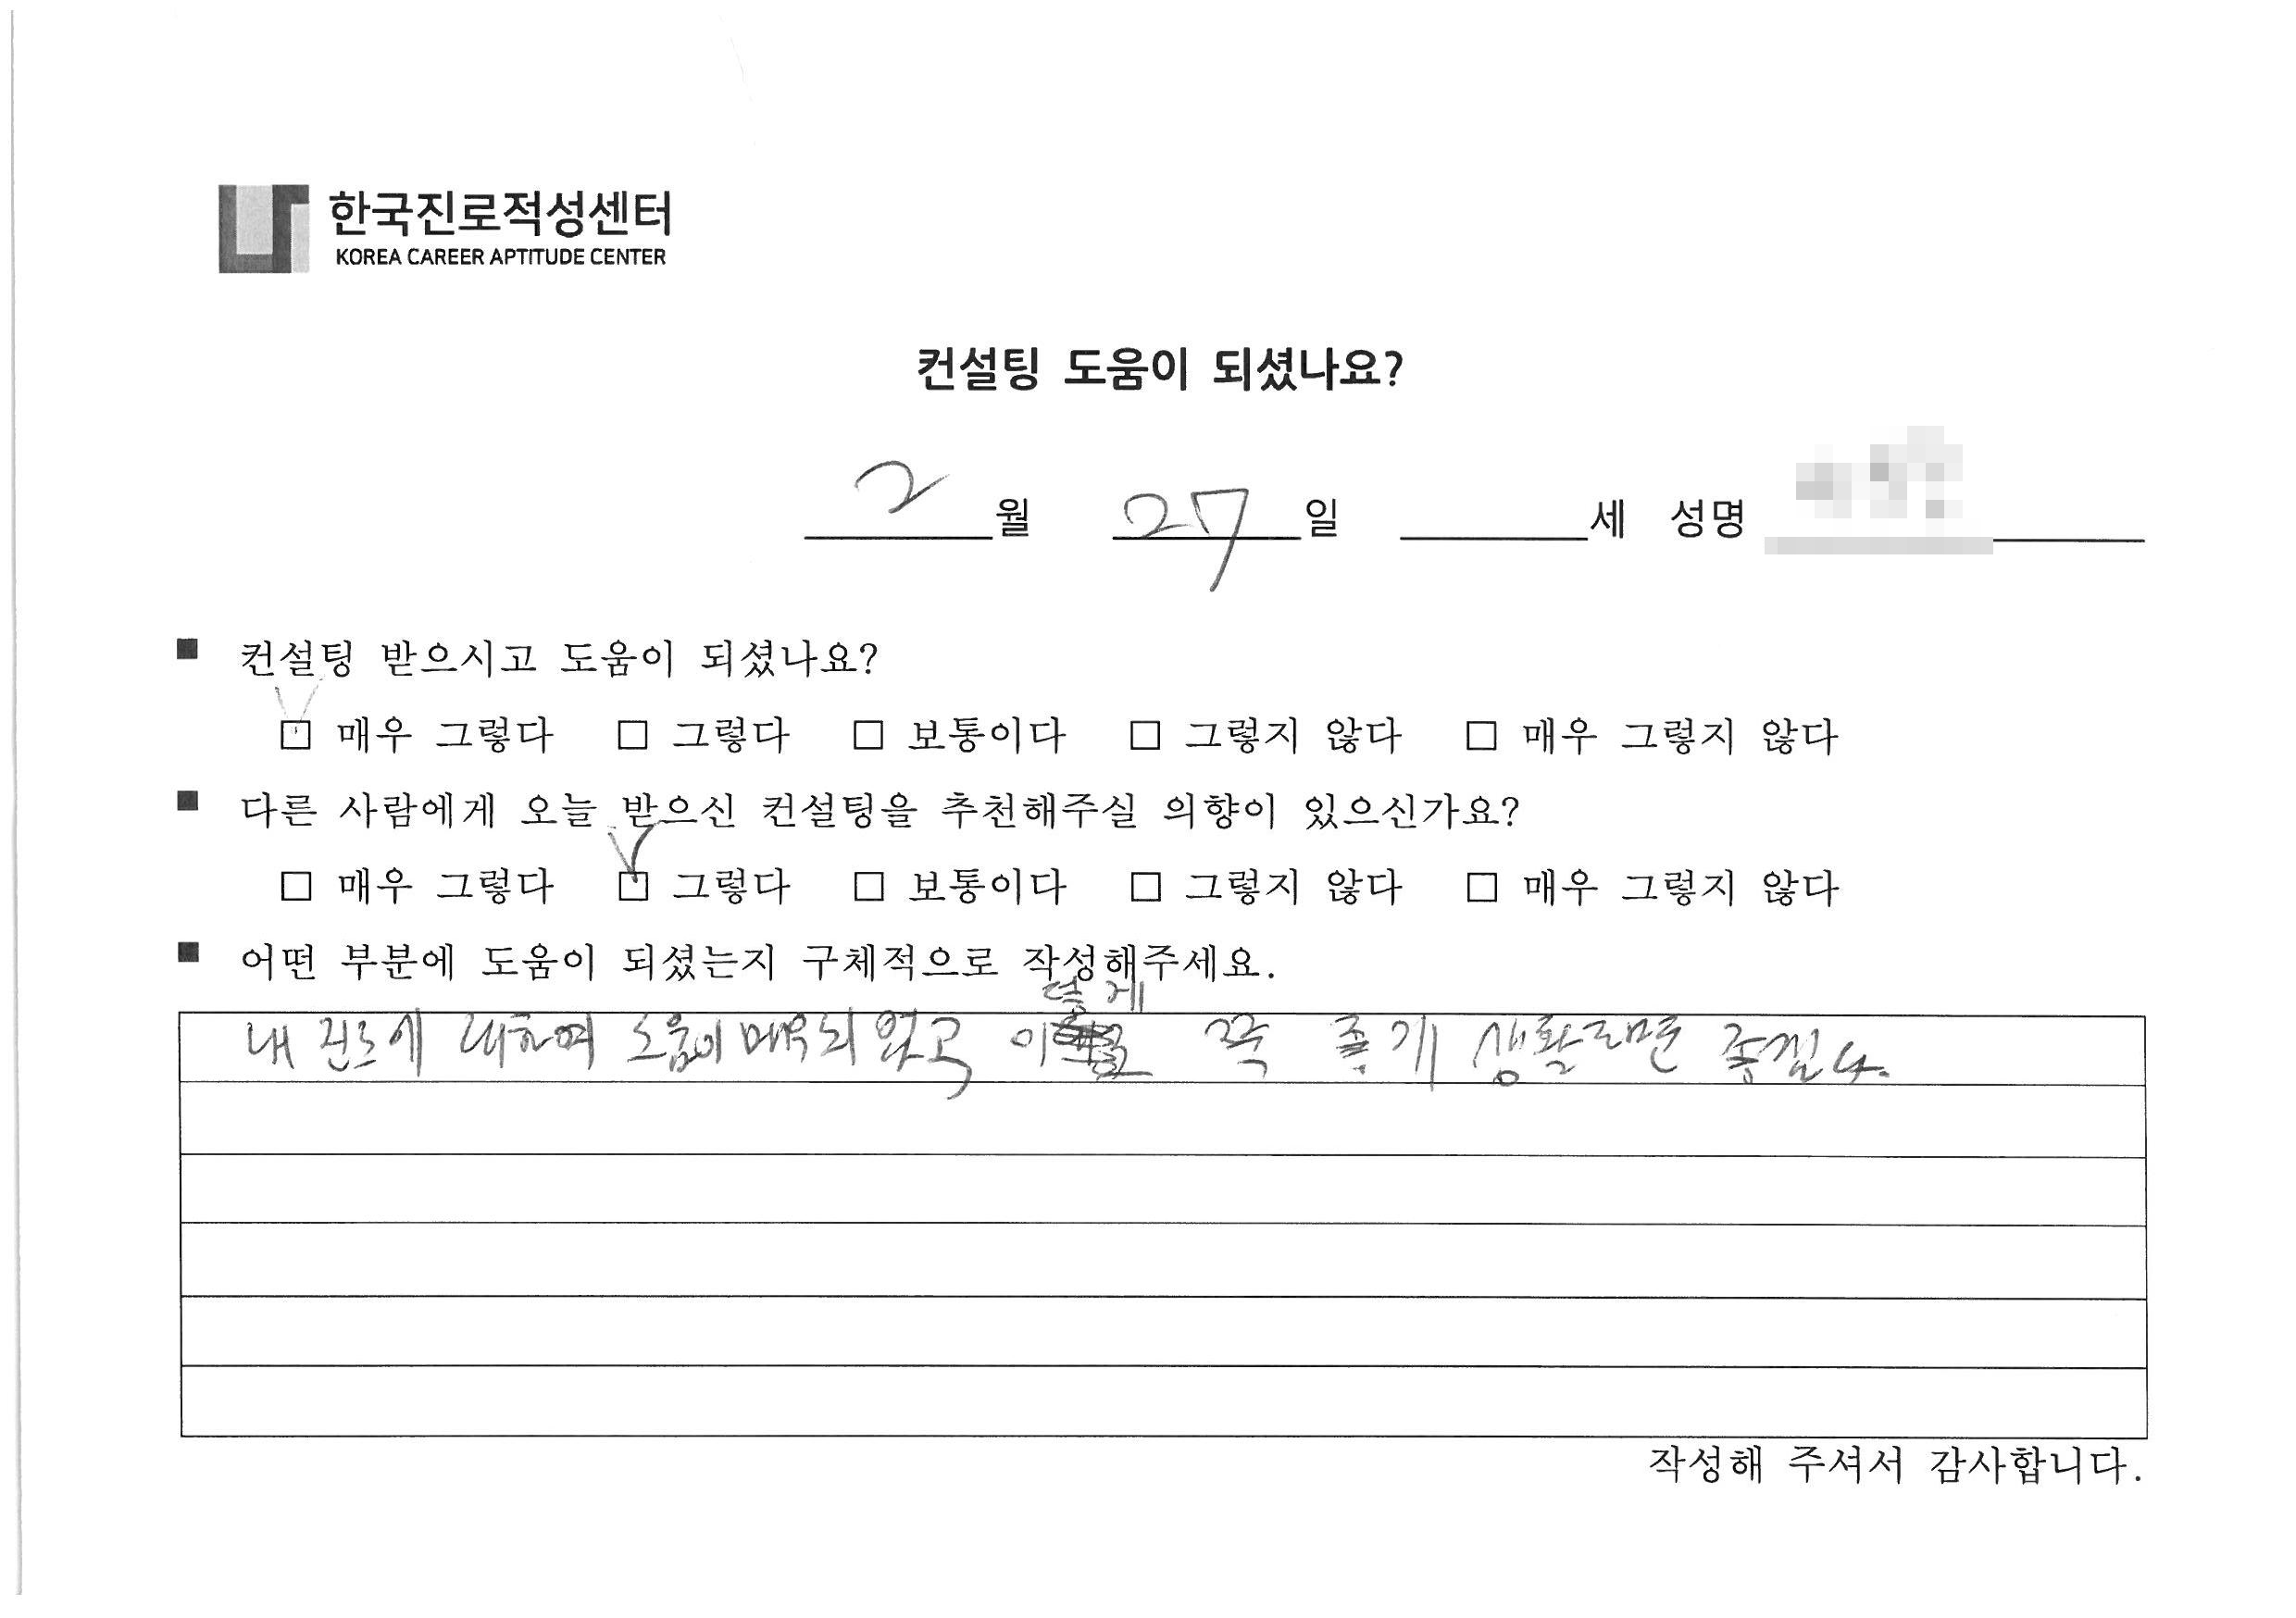 한국진로적성센터
KOREA CAREER APTITUDE CENTER
컨설팅 도움이 되셨나요?
2 월 27 일 세 성명
■ 컨설팅 받으시고 도움이 되셨나요?
☑ 매우 그렇다 □ 그렇다 □ 보통이다 □ 그렇지 않다 □ 매우 그렇지 않다
■ 다른 사람에게 오늘 받으신 컨설팅을 추천해주실 의향이 있으신가요?
□ 매우 그렇다 ☑ 그렇다 □ 보통이다 □ 그렇지 않다 □ 매우 그렇지 않다
■ 어떤 부분에 도움이 되셨는지 구체적으로 작성해주세요.
내 진로에 대하여 도움이 매우 되었고 이렇게 쭉 좋게 생활하면 좋겠다.
작성해 주셔서 감사합니다.